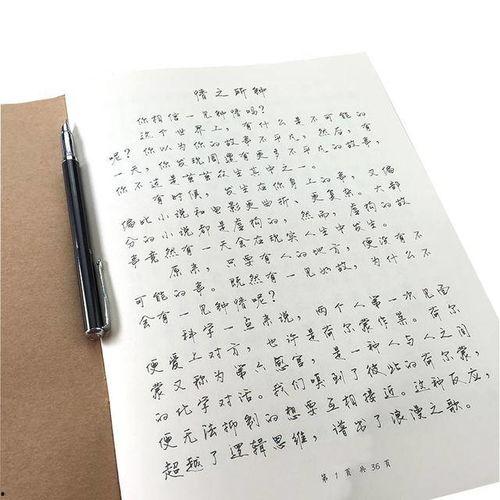 情之所钟
你相信一见钟情吗？
这个世界上，有什么是不可能的
呢？你以为你的故事不平凡，然后，有
一天，你发现周围有更多不平凡的故事，
你不过是芸芸众生其中之一。
有时候，发生在你身上的事，又偏
偏比小说和电影更曲折、更复杂。大部
分的小说都是虚构的，然而，虚构的故
事竟然有一天会在现实人生中发生。
原来，只要有人的地方，便没有不
可能的事。既然有一见如故，为什么不
会有一见钟情呢？
科学一点来说，两个人第一次见面
便爱上对方，也许是荷尔蒙作祟。荷尔
蒙又称为第六感官，是一种人与人之间
的化学对话。我们嗅到了彼此的荷尔蒙，
便无法抑制的想要互相接近。这种反应，
超越了逻辑思维，谱写了浪漫之歌。
第 1 页 共 36 页